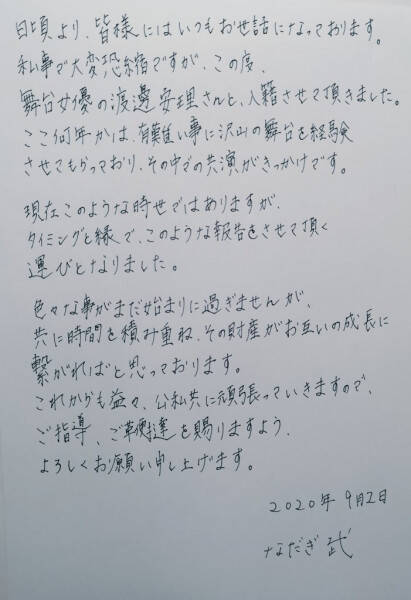 日頃より、皆様にはいつもお世話になっております。
私事で大変恐縮ですが、この度、
舞台女優の渡邊安理さんと、入籍させて頂きました。
ここ何年かは、有難い事に沢山の舞台を経験
させてもらっており、その中での共演がきっかけです。
現在このような時世ではありますが、
タイミングと縁で、このような報告をさせて頂く
運びとなりました。
色々な事がまだ始まりに過ぎませんが、
共に時間を積み重ね、その財産がお互いの成長に
繋がればと思っております。
これからも益々、公私共に頑張っていきますので、
ご指導、ご鞭撻を賜りますよう、
よろしくお願い申し上げます。
2020年 9月2日
なだぎ 武